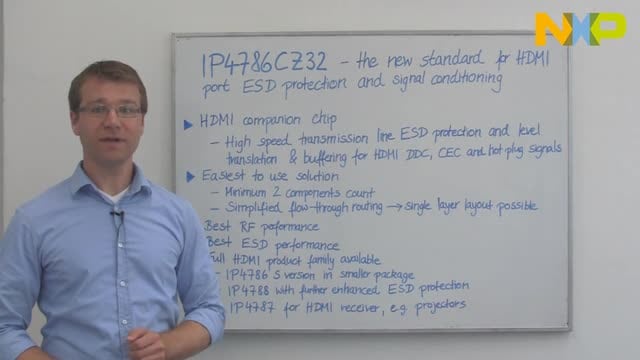 NXP
IP4786CZ32 - the new standard for HDMI
port ESD protection and signal conditioning
HDMI companion chip
- High speed transmission line ESD protection and level
translation & buffering for HDMI DDC, CEC and hot plug signals
Easiest to use solution
- Minimum 2 components count
- Simplified flow-through routing → single layer layout possible
Best RF performance
Best ESD performance
Full HDMI product family available
- IP4786 S version in smaller package
IP4788 with further enhanced ESD protection
IP4787 for HDMI receiver, e.g. projectors